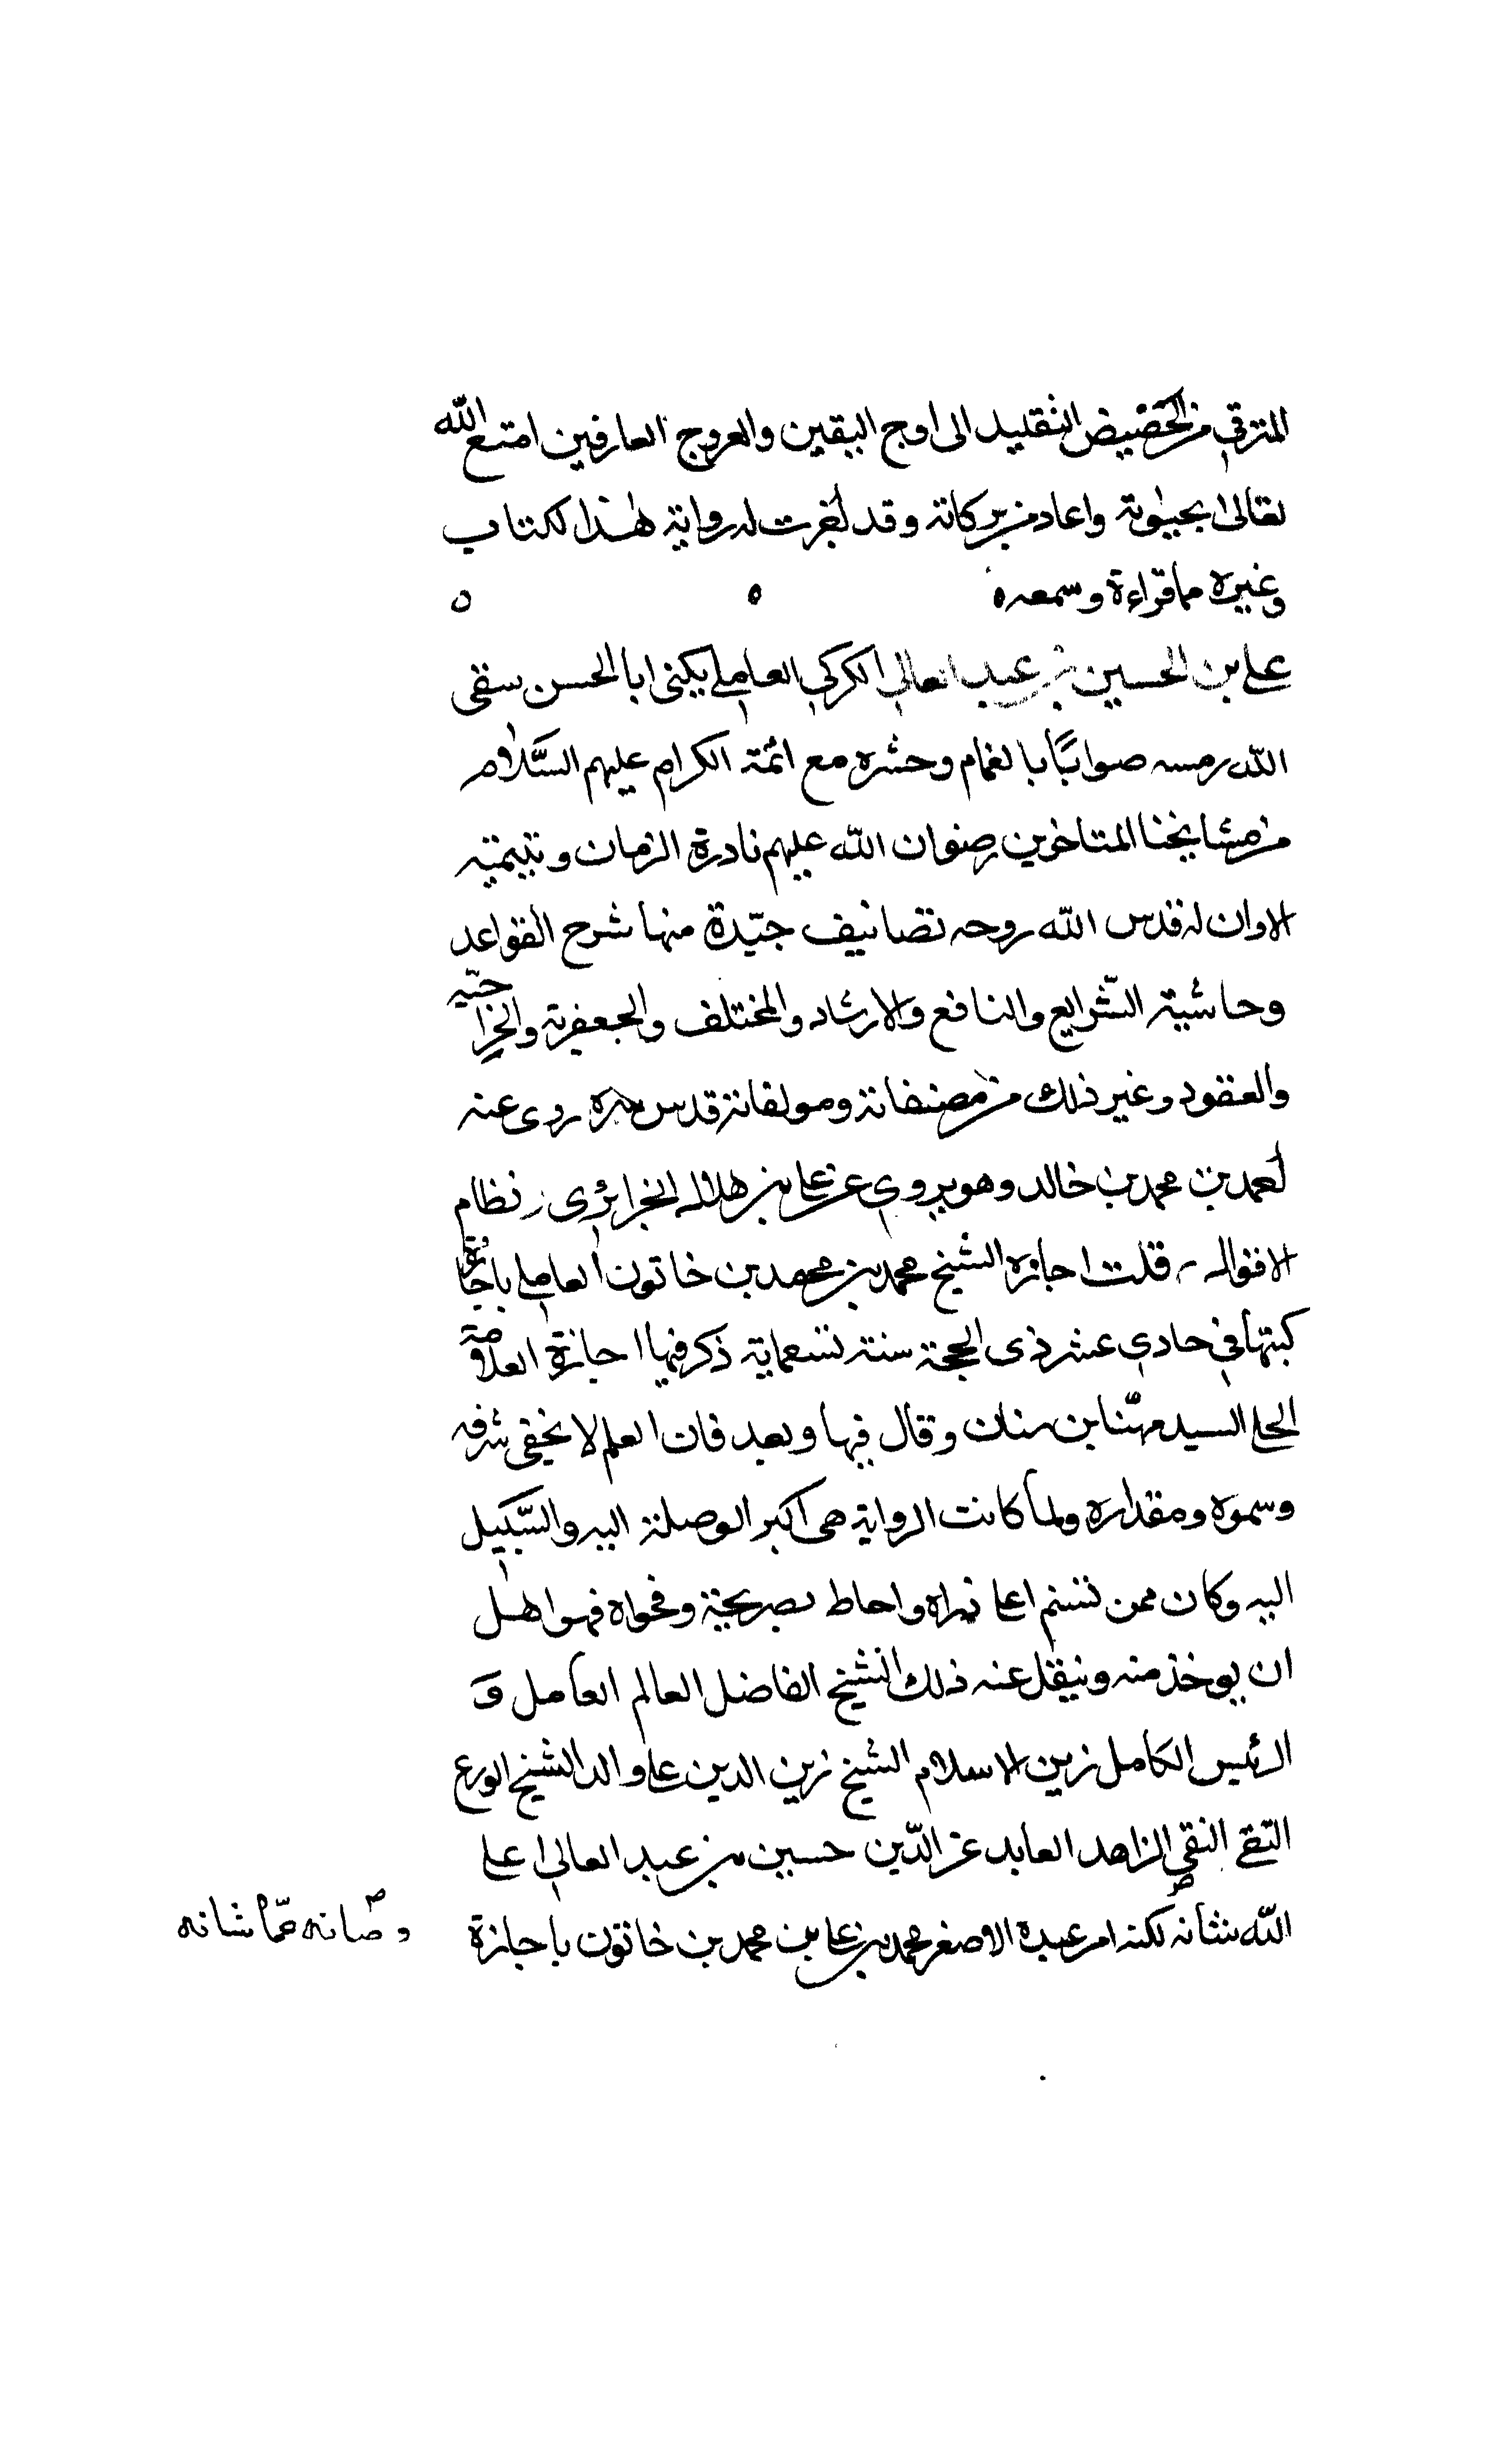 المترقي من الحضيض التقليد الى اوج اليقين والعروج العارفين امتع الله
تعالى بحيوته واعاد من بركاته وقد اجزت له رواية هذا الكتاب
وغيره مما قراءة وسمعه
علي بن الحسين بن عبد العالي الكركي العاملي يكنى ابا الحسن سقى
الله رمسه صوابًا بالغمام وحشره مع ائمة الكرام عليهم السَّلام
من مشايخنا المتاخرين رضوان الله عليهم نادرة الزمان ويتيمتيه
الاوان له قدس الله روحه تصانيف جيّدة منها شرح القواعد
وحاشية الشّرايع والنافع والارشاد والمختلف والجعفرية والخراجيّه
والعقود وغير ذلك من مصنفاته ومولفاته قدس سره روى عنه
احمد بن محمد بن خالد وهو يروي عن علي بن هلال الجزائري نظام
الاقوال قلت اجازه الشيخ محمد بن محمد بن خاتون العاملي باجازة
كتبها في حادي عشر ذى الحجة سنة تسعماية ذكر فيها اجازة العلامة
الحلي السيد مهنّا بن سنان وقال فيها وبعد فان العلم لا يخفى شرفه
وسموه ومقداره ولما كانت الرواية هي اكبر الوصلة اليه والسَّبيل
اليه وكان ممن تسنم اعلا ذراه واحاط بصريحة وفحواه فهو اهل
ان يوخذ منه وينقل عنه ذلك الشيخ الفاضل العالم العامل وَ
الرئيس الكامل زين الاسلام الشيخ زين الدين علي والد الشيخ الورع
التقي النقي الزاهد العابد عز الدّين حسين بن عبد العالي اعلى
الله شانه لكنه امر عبده الاصغر محمد بن علي بن محمد بن خاتون باجازة
وصانه عمّا شانه